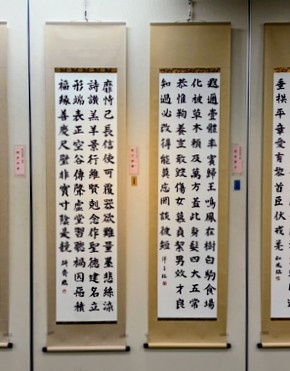 垂拱平章愛育黎首臣伏戎羌
遐邇壹體率賓歸王鳴鳳在樹白駒食場
化被草木賴及萬方蓋此身髮四大五常
恭惟鞠養豈敢毀傷女慕貞絜男效才良
知過必改得能莫忘罔談彼短
靡恃己長信使可覆器欲難量墨悲絲染
詩讚羔羊景行維賢剋念作聖德建名立
形端表正空谷傳聲虛堂習聽禍因惡積
福緣善慶尺璧非寶寸陰是競